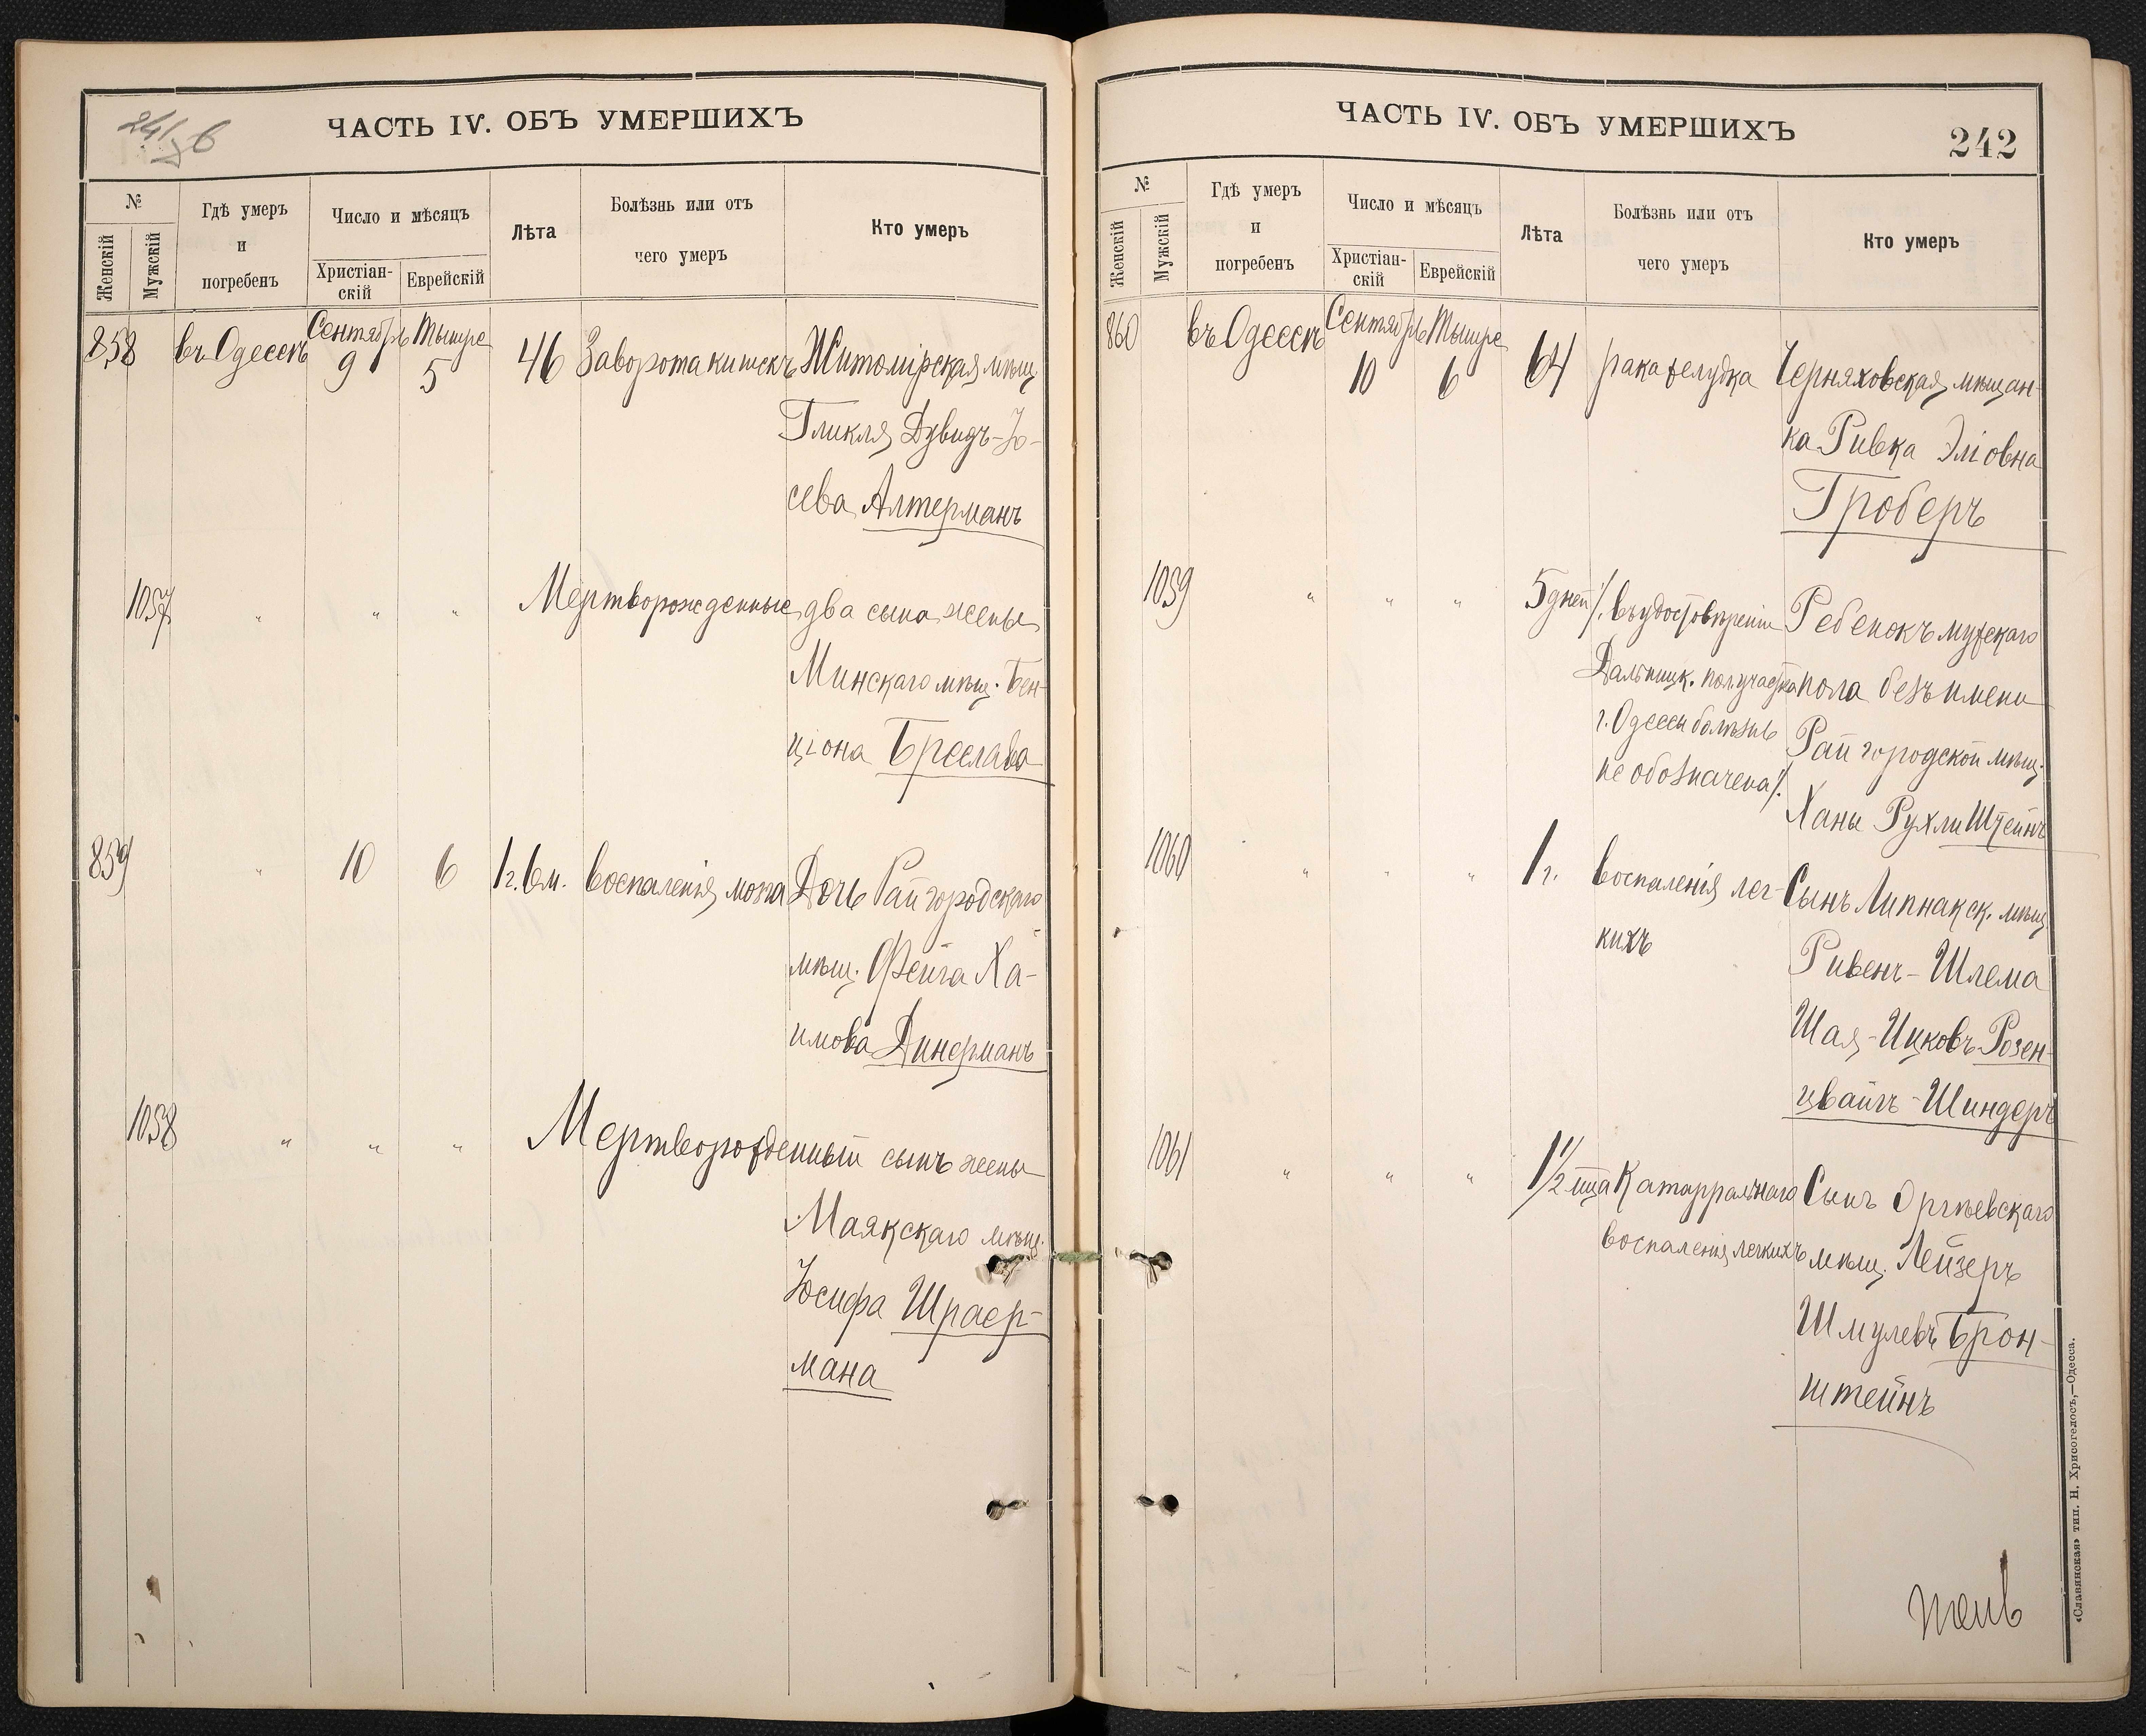 ЧАСТЬ IV. ОБЪ УМЕРШИХЪ
№
Женскій
Мужскій
Гдѣ умеръ
и
погребенъ
Число и мѣсяцъ
Христіан-
скій
Еврейскій
Лѣта
Болѣзнь или отъ
чего умеръ
Кто умеръ
858 въ Одессѣ Сентябрь 9 Тышре 5 46 Заворота кишекъ Житомірская мѣщ.
Гликля Дувидъ-Іо-
сева Алтерманъ
1057 " " " Мертворожденные два сына жены
Минскаго мѣщ. Бен-
ціона Бреслава
859 " 10 6 1 г. 6 м. воспаленія мозга Дочь Райгородскаго
мѣщ. Фейга Ха-
имова Динерманъ
1058 " " " Мертворожденный сынъ жены
Маякскаго мѣщ.
Іосифа Шраер-
мана
ЧАСТЬ IV. ОБЪ УМЕРШИХЪ
242
№
Женскій
Мужскій
Гдѣ умеръ
и
погребенъ
Число и мѣсяцъ
Христіан-
скій
Еврейскій
Лѣта
Болѣзнь или отъ
чего умеръ
Кто умеръ
860 въ Одессѣ Сентябрь 10 Тышре 6 64 рака желудка Черняховская мѣщан-
ка Ривка Эліовна
Гроберъ
1059 " " " 5 дней /. въ удостовѣреніи Ребенокъ мужескаго
Дальницк. пол. участка пола безъ имени
г. Одессы болѣзнь Райгородской мѣщ.
не обозначена /. Ханы Рухли Штейнъ
1060 " " " 1 г. воспаленія лег- Сынъ Липнакск. мѣщ.
кихъ Ривенъ-Шлема
Шая-Ицковъ Розен-
цвайгъ-Шиндеръ
1061 " " " 1 1/2 мца Катарральнаго Сынъ Оргѣевскаго
воспаленія легкихъ мѣщ. Лейзеръ
Шмулевъ Брон-
штейнъ
«Славянская» тип. Н. Хрисогелосъ,—Одесса.